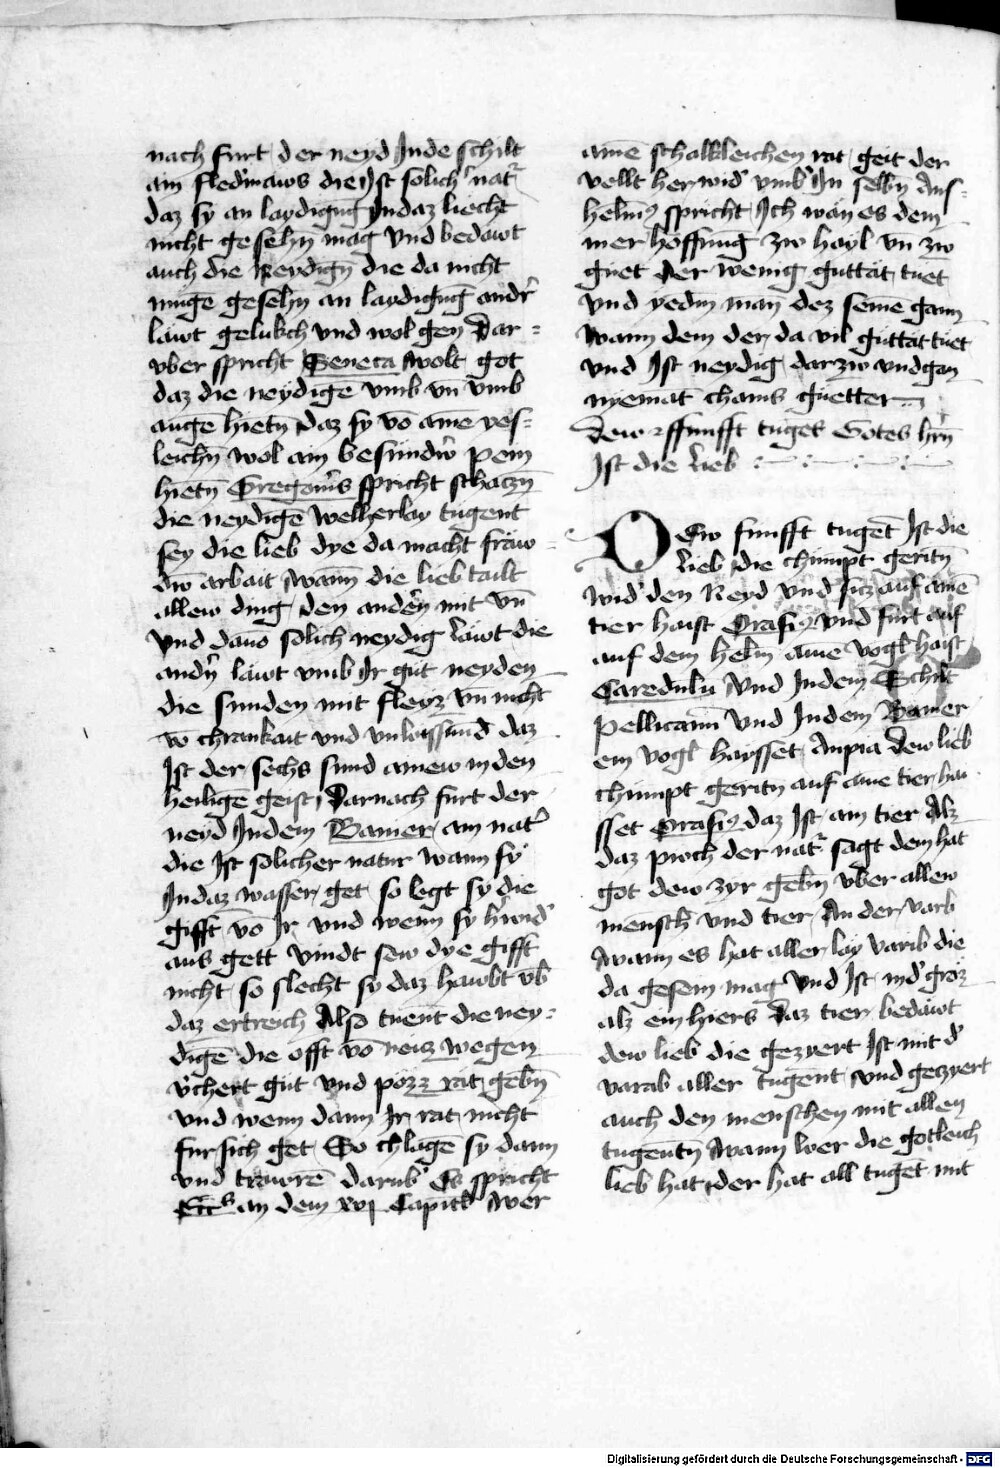 nach furt der neyd Inde schilt
ain fledmaws die Ist solich nat
daz sy an laydigūg Indaz liecht
nicht gesehn mag vnd bedawt
auch die Neydign die da nicht
muge gesehn an laydigūg andr
lawt gelukch vnd wol gen Dar=
vber spricht Seneca Wolt got
daz die neydige vmb vn vmb
augē hietn daz sy vō ame yes=
leichn wol ain besundr pein
hietn Gregorius spricht schaczn
die neydigē welherlay tugent
sey die lieb dye da macht fraw=
dw arbait Wann die lieb tailt
allew ding den andern mit vn
vnd davo solich neydig lawt die
andn lawt vmb Ir gut neyden
die sunden mit fleyz vn nicht
vo chrankait vnd vnwissund daz
Ist der sechs sund ainew in den
heiligē geist Darnach furt der
neyd Indem Banier ain nat
die Ist solicher natur wann sy
Indaz wasser get so legt sy die
gifft vō Ir vnd wenn sy hwid
aus gett vindt sew dye gifft
nicht so slecht sy daz hawbt vb
daz ertreich Also tuent die ney=
digē die offt vō neis wegen
vchert gut vnd pozz rat gebn
vnd wenn dann Ir rat nicht
fursich get So chlagē sy dann
vnd trawrē darub Es spricht
an dem xvj Capitl Wer
aine schalkleichen rat geit der
vellt herwid vmb In selbn Ans=
helm spricht Ich wan es dem
mer hoffnug zw hayl vn zw
guet der wenig guttat tuet
vnd yedm man dez seine gann
Wann dem der da vil guttat tuet
vnd Ist neydig darzw vndgan
nyemāt chains guetter
Dew funfft tuget Gotes hrn
Ist die lieb
Dew funfft tugēt Ist die
lieb die chumpt geritn
wid den Neyd vnd sicz auf aine
tier haist Orafius vnd furt auf
auf dem helm aine vogl haist
Caredulu vnd Indem Schilt
Pellicann vnd Indem Banier
ein vogl haysset Anpia Dew lieb
chumpt geritn auf aine tier hai
sset Orafius daz Ist ain tier Alz
daz puch der nat sagt dem hat
got dew zyr gebn vber allew
mensch vnd tier An der varb
Wann es hat aller lay varib die
da gesein mag vnd Ist nid groz
alz ein hiers Daz tier bedawt
dew lieb die gezyert Ist mit d
varab aller tugent vnd geczyert
auch den menschen mit allen
tugentn Wann wer die gotleich
lieb hat der hat all tugēt mit
Digitalisierung gefördert durch die Deutsche Forschungsgemeinschaft - DFG